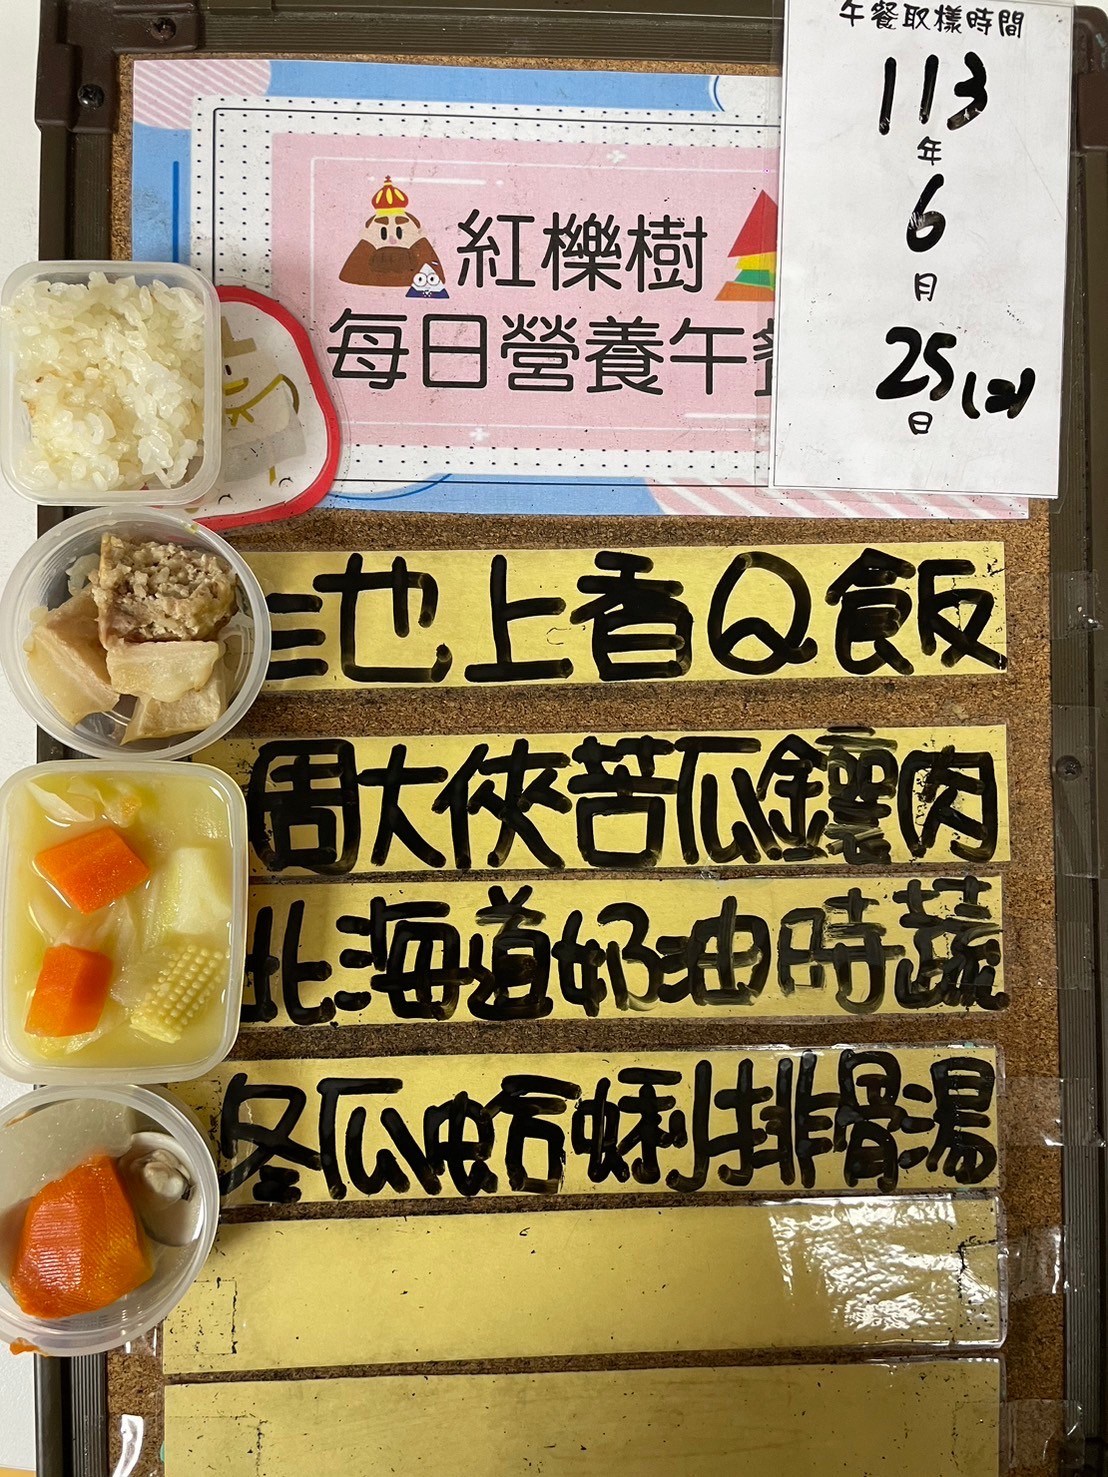 午餐取樣時間
113
年
6
月
25(二)
日
紅櫟樹
每日營養午
池上香Q飯
周大俠苦瓜鑲肉
北海道奶油時蔬
冬瓜蛤蜊排骨湯